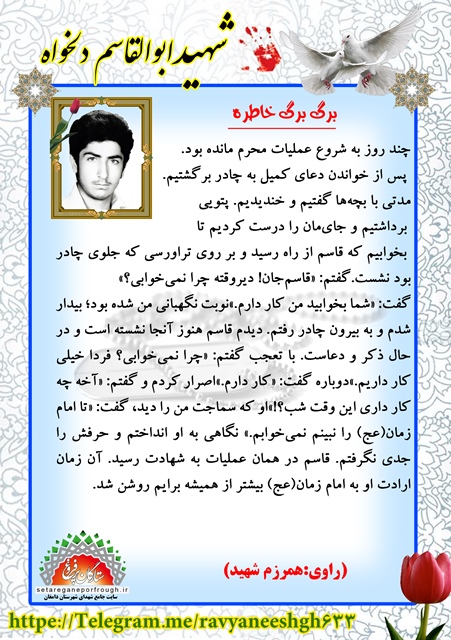 شهید ابوالقاسم دلخواه
برگ برگ خاطره
چند روز به شروع عملیات محرم مانده بود.
پس از خواندن دعای کمیل به چادر برگشتیم.
مدتی با بچه‌ها گفتیم و خندیدیم. پتویی
برداشتیم و جای‌مان را درست کردیم تا
بخوابیم که قاسم از راه رسید و بر روی تراورسی که جلوی چادر
بود نشست.گفتم: «قاسم‌جان! دیروقته چرا نمی‌خوابی؟»
گفت: «شما بخوابید من کار دارم.»نوبت نگهبانی من شده بود؛ بیدار
شدم و به بیرون چادر رفتم. دیدم قاسم هنوز آنجا نشسته است و در
حال ذکر و دعاست. با تعجب گفتم: «چرا نمی‌خوابی؟ فردا خیلی
کار داریم.»دوباره گفت: «کار دارم.»اصرار کردم و گفتم: «آخه چه
کار داری این وقت شب؟!»او که سماجت من را دید، گفت: «تا امام
زمان(عج) را نبینم نمی‌خوابم.» نگاهی به او انداختم و حرفش را
جدی نگرفتم. قاسم در همان عملیات به شهادت رسید. آن زمان
ارادت او به امام زمان(عج) بیشتر از همیشه برایم روشن شد.
(راوی:همرزم شهید)
ستارگان پرفروغ
setareganeporfrough.ir
سایت جامع شهدای شهرستان دامغان
https://Telegram.me/ravyaneeshgh633